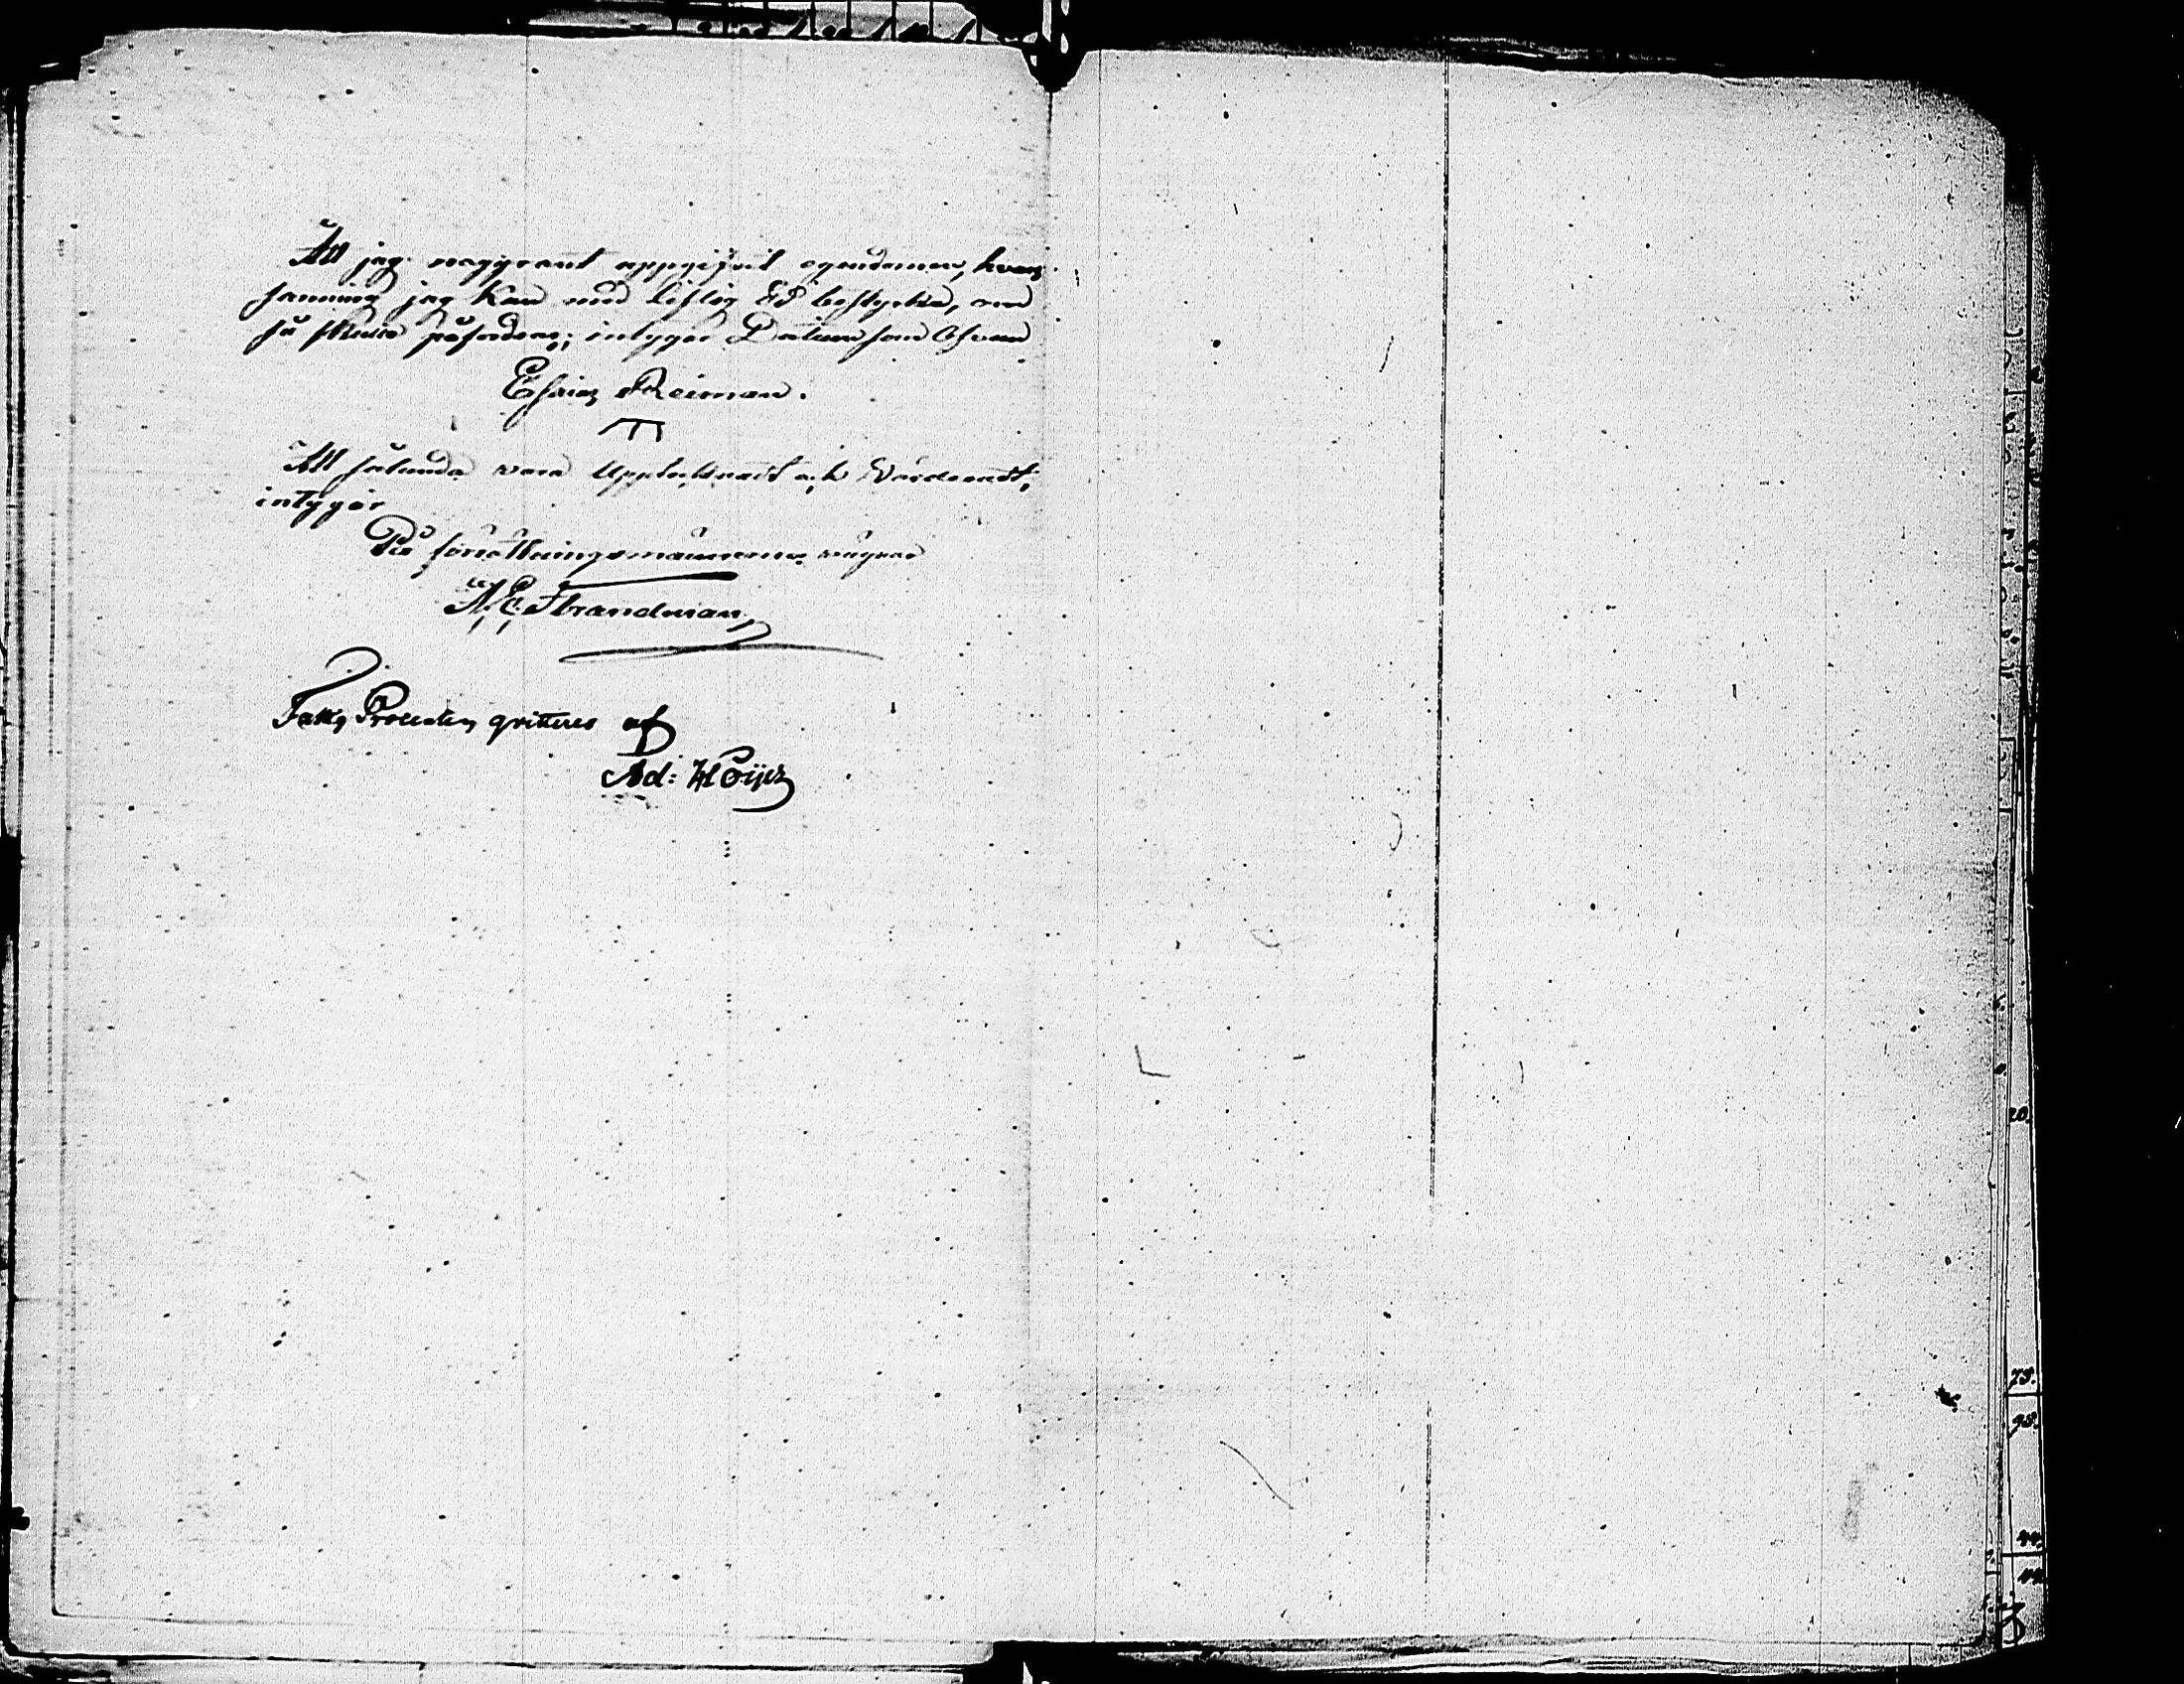 Att jag noggrant uppgifvit egendomen, hvars
sanning jag kan med liflig Ed bestyrka, om
så skulle påfordras; intygar Datum som Ofvan
Reiman.
Att sålunda vara Upptecknadt och Värderadt,
intygar
På förrättningsmännernes vägnar
A. E. Strandman,
Fattig Procenten qvitteras af
Ad:
20.
75.
98.